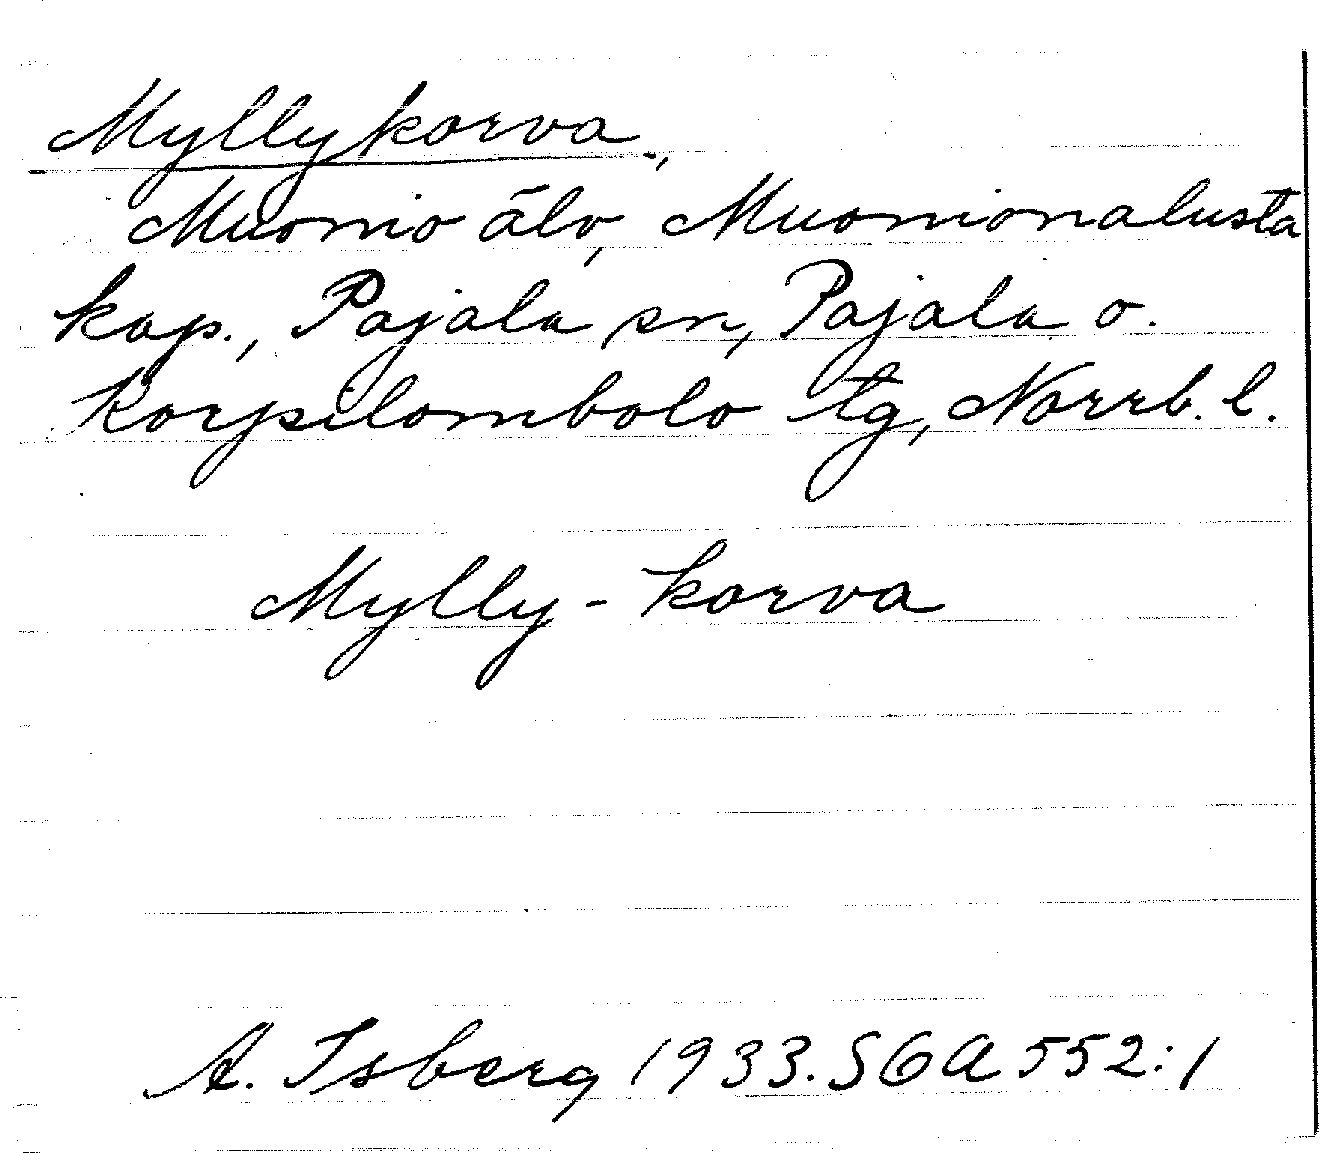 Myllykorva,
Muonio älv, Muonionalusta
kap., Pajala sn, Pajala o.
Korpilombolo tg, Norrb. l.
Mylly-korva
A. Isberg 1933. SOA 552:1